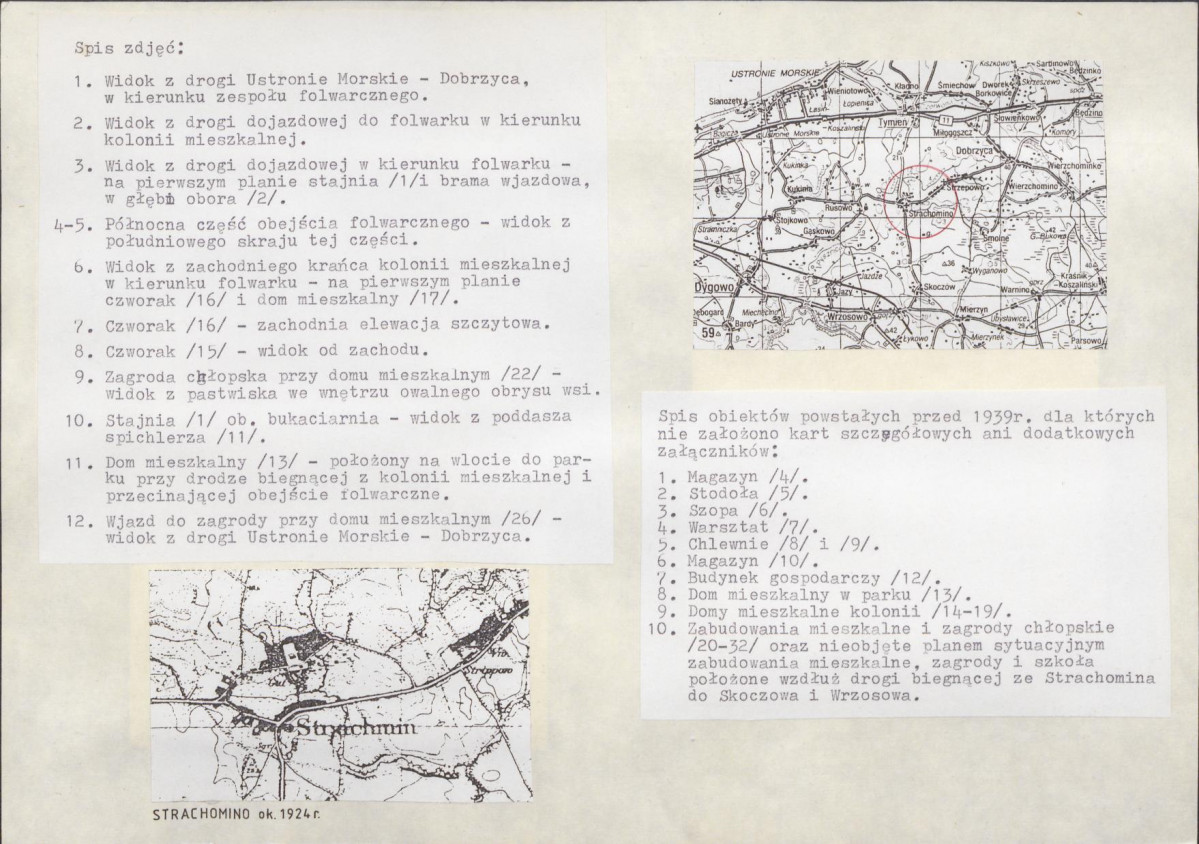 Spis zdjęć:
1. Widok z drogi Ustronie Morskie - Dobrzyca,
w kierunku zespołu folwarcznego.
2. Widok z drogi dojazdowej do folwarku w kierunku
kolonii mieszkalnej.
3. Widok z drogi dojazdowej w kierunku folwarku -
na pierwszym planie stajnia /1/i brama wjazdowa,
w głębi obora /2/.
4-5. Północna część obejścia folwarcznego - widok z
południowego skraju tej części.
6. Widok z zachodniego krańca kolonii mieszkalnej
w kierunku folwarku - na pierwszym planie
czworak /16/ i dom mieszkalny /17/.
7. Czworak /16/ - zachodnia elewacja szczytowa.
8. Czworak /15/ - widok od zachodu.
9. Zagroda chłopska przy domu mieszkalnym /22/ -
widok z pastwiska we wnętrzu owalnego obrysu wsi.
10. Stajnia /1/ ob. bukaciarnia - widok z poddasza
spichlerza /11/.
11. Dom mieszkalny /13/ - położony na wlocie do par-
ku przy drodze biegnącej z kolonii mieszkalnej i
przecinającej obejście folwarczne.
12. Wjazd do zagrody przy domu mieszkalnym /26/ -
widok z drogi Ustronie Morskie - Dobrzyca.
Strachmin
Strippow
STRACHOMINO ok. 1924r.
USTRONIE MORSKIE
Kiszkowo
Sarbinowo
Będzinko
Sianożęty
Wieniotowo
Kładno
Śmiechów
Dworek
Borkowice
Skrzeszewo
Łopienica
Łasin
Tymień
11
Słowienkowo
Będzino
Bagicz
Ustronie Morskie
Koszalińskie
Miłogoszcz
Komory
Dobrzyca
Kukinka
Wierzchominko
Kukinia
Strzepowo
Wierzchomino
Rusowo
Strachomino
Stojkowo
Stramniczka
Gąskowo
Smolne
G. Bukowa
42
36
Wyganowo
Jażdże
Dygowo
Skoczów
Kraśnik
Koszaliński
Jazy
Warnino
Miechęcino
Wrzosowo
Mierzyn
59
Bardy
42
Łykowo
Mierzynek
Parsowo
Spis obiektów powstałych przed 1939r. dla których
nie założono kart szczegółowych ani dodatkowych
załączników:
1. Magazyn /4/.
2. Stodoła /5/.
3. Szopa /6/.
4. Warsztat /7/.
5. Chlewnie /8/ i /9/.
6. Magazyn /10/.
7. Budynek gospodarczy /12/.
8. Dom mieszkalny w parku /13/.
9. Domy mieszkalne kolonii /14-19/.
10. Zabudowania mieszkalne i zagrody chłopskie
/20-32/ oraz nieobjęte planem sytuacyjnym
zabudowania mieszkalne, zagrody i szkoła
położone wzdłuż drogi biegnącej ze Strachomina
do Skoczowa i Wrzosowa.